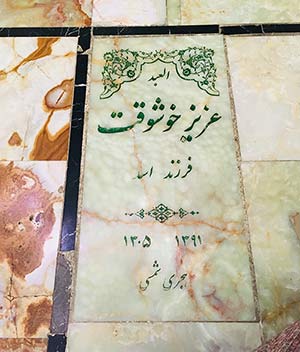 العبد
عزیز خوشوقت
فرزند
۱۳۹۱ ۱۳۰۵
هجری شمسی